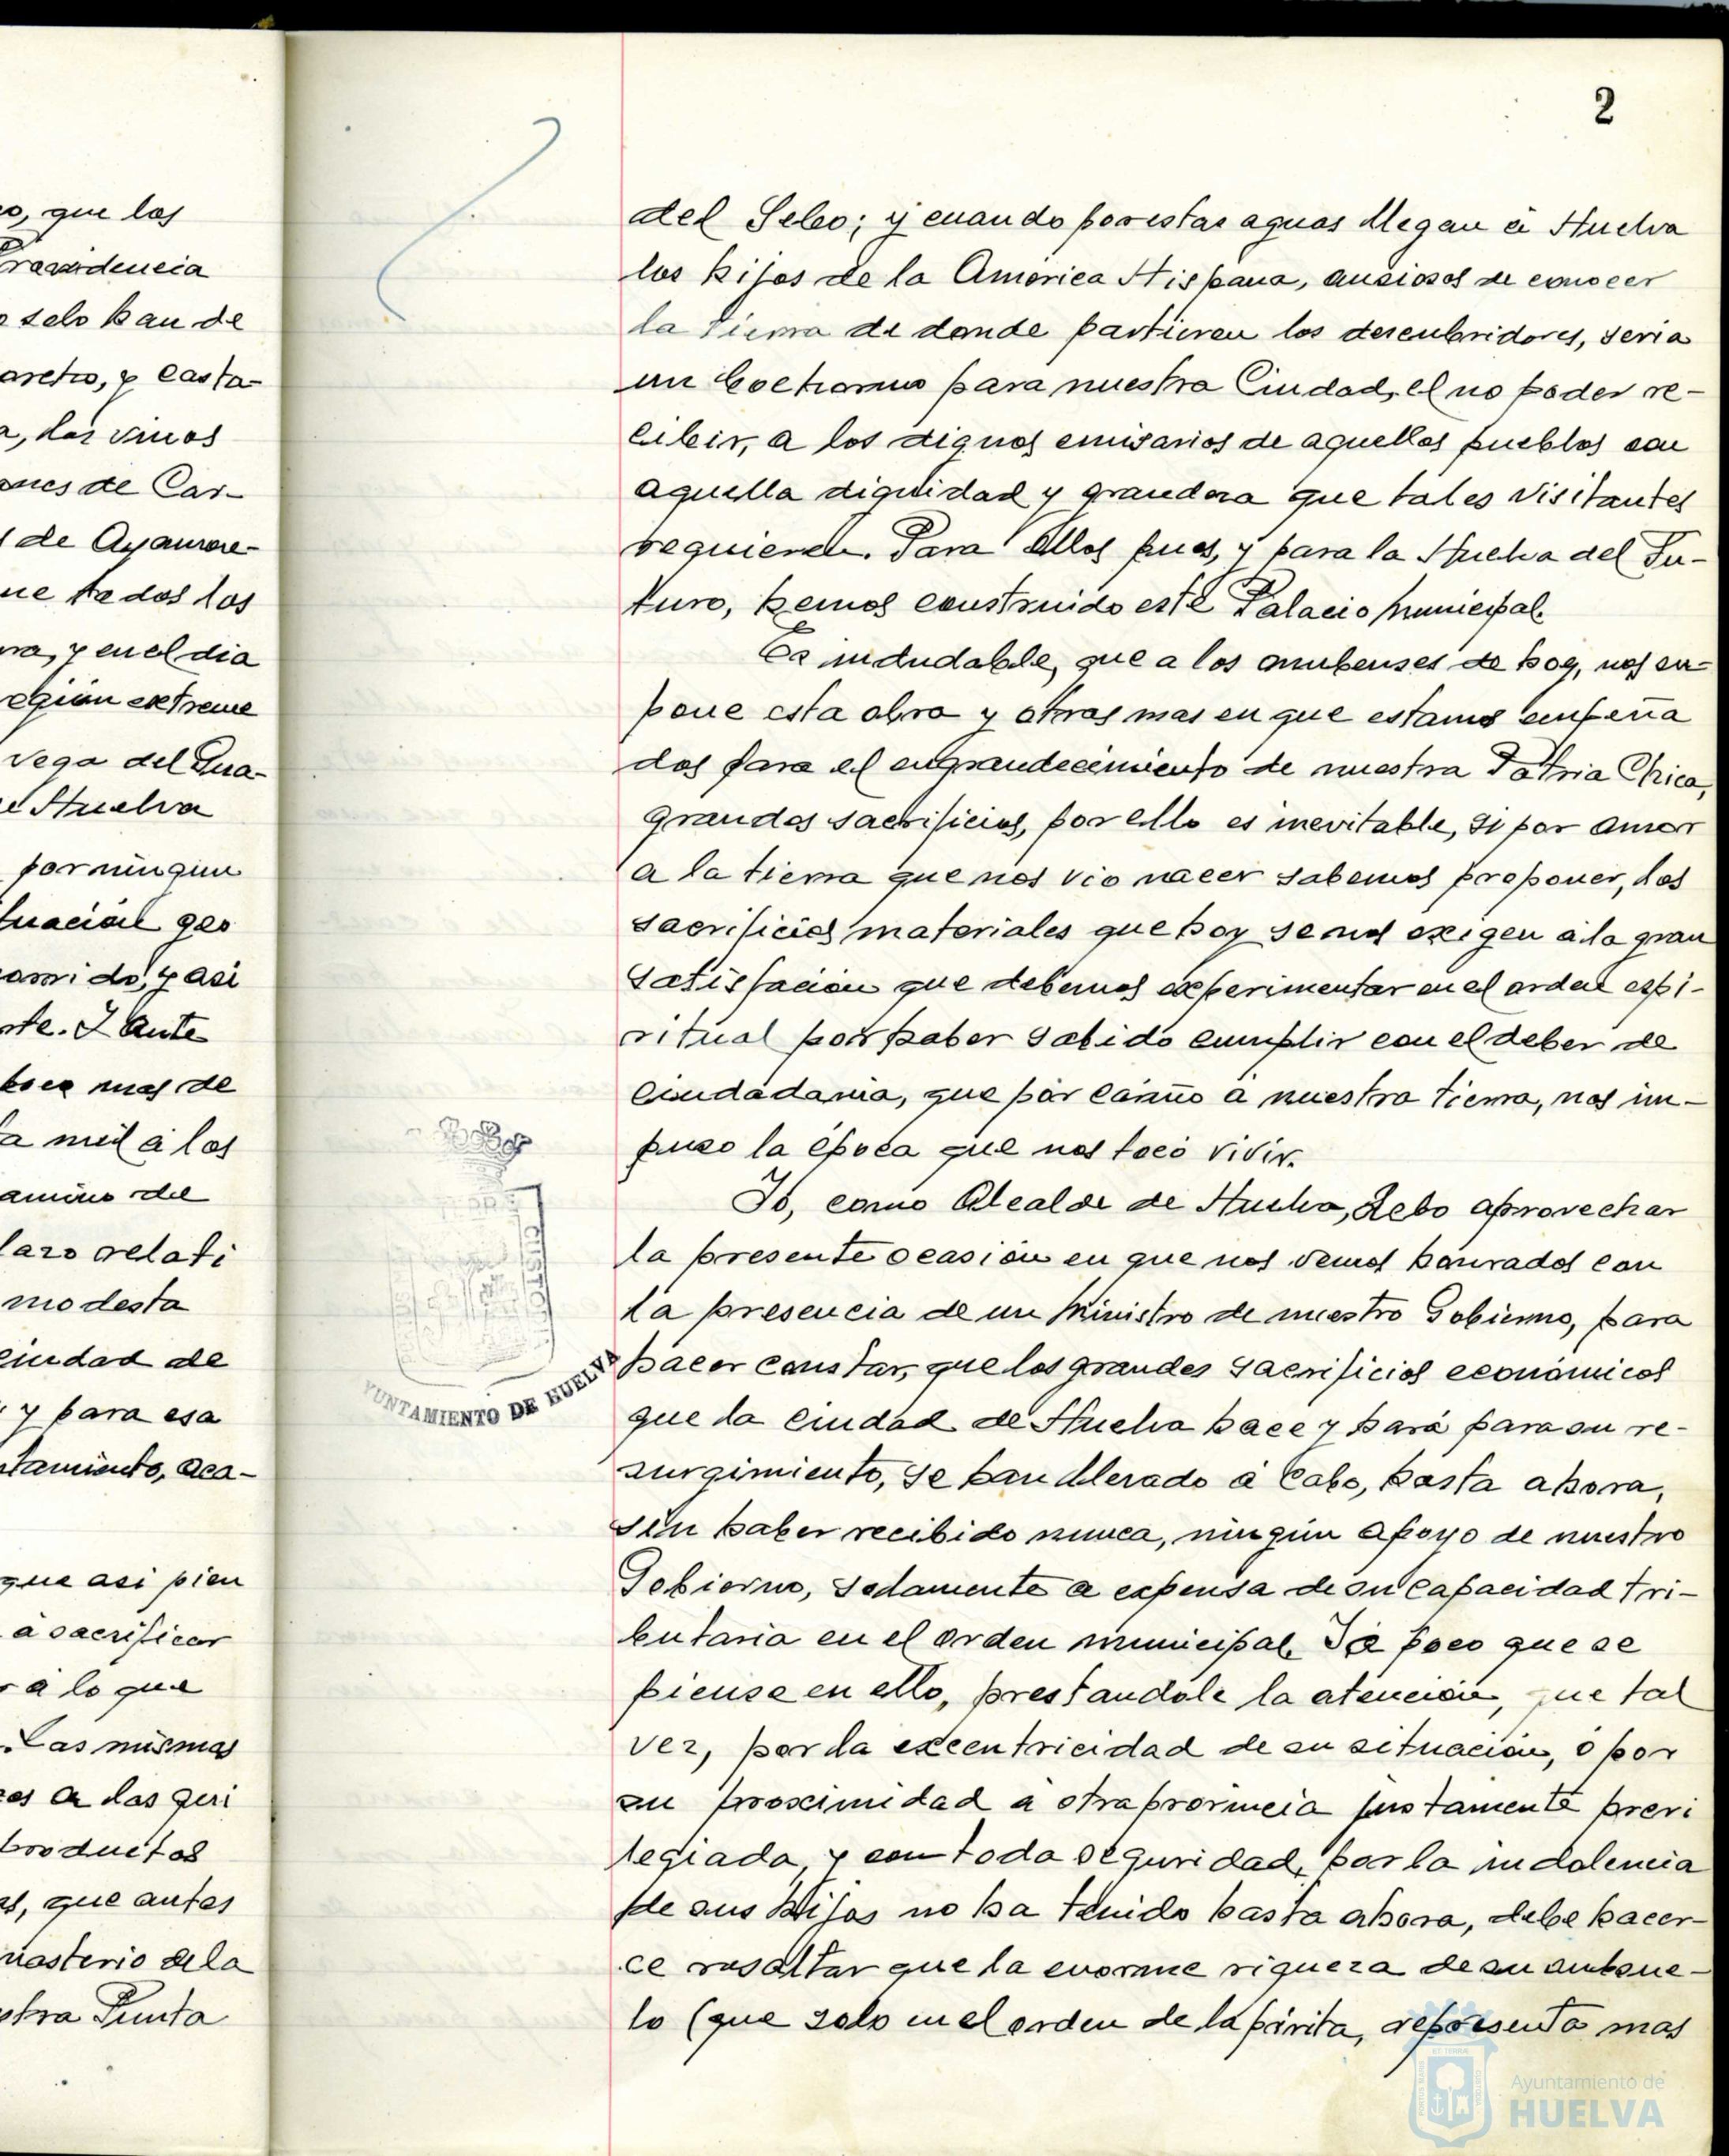 o, que los
Presidencia
o selo han de
aretro, y casta-
a, los vinos
ones de Car-
de Ayamon-
ue todos los
ra, y en el dia
egión extreme
vega del Gua-
e Huelva
por ningun
tuación geo
y asi
ste. Y ante
mas de
a mil á los
amino del
lazo relati
modesta
ciudad de
y para esa
ntamiento, aca-
que asi pien
á sacrificar
r á lo que
. Las mismas
es a las que
productos
s, que antes
nasterio de la
stra Punta
2
del Sebo; y cuando por estas aguas llegan á Huelva
los hijos de la America Hispana, ansiosos de conocer
la tierra de donde partieron los descubridores, seria
un bochorno para nuestra Ciudad, el no poder re-
cibir, a los dignos emisarios de aquellos pueblos con
aquella dignidad y grandeza que tales visitantes
requieren. Para ellos pues, y para la Huelva del Fu-
turo, hemos construido este Palacio Municipal.
Es indudable, que a los onubenses de hoy, nos en-
pone esta obra y otras mas en que estamos empeña
dos para el engrandecimiento de nuestra Patria Chica,
grandes sacrificios, por ello es inevitable, si por amor
a la tierra que nos vio nacer sabemos proponer, los
sacrificios materiales que hoy se nos exigen á la gran
satisfación que debemos experimentar en el orden espi-
ritual por haber sabido cumplir con el deber de
ciudadania, que por cariño a nuestra tierra, nos im-
puso la época que nos tocó vivir.
Yo, como Alcalde de Huelva, debo aprovechar
la presente ocasión en que nos vemos honrados con
la presencia de un Ministro de nuestro Gobierno, para
hacer constar, que los grandes sacrificios económicos
que la ciudad de Huelva hace y hará para su re-
surgimiento, se han llevado á cabo, hasta ahora,
sin haber recibido nunca, ningún apoyo de nuestro
Gobierno, solamente a expensa de su capacidad tri-
butaria en el orden municipal. Y a poco que se
piense en ello, prestandole la atención, que tal
vez, por la excentricidad de su situación, ó por
su proximidad a otra provincia justamente previ
legiada, y con toda seguridad, por la indolencia
de sus hijos no ha tenido hasta ahora, debe hacer-
ce resaltar que la enorme riqueza de su subsue-
lo (que solo en el orden de la pirita, representa mas
YUNTAMIENTO DE HUELVA
Ayuntamiento de
HUELVA